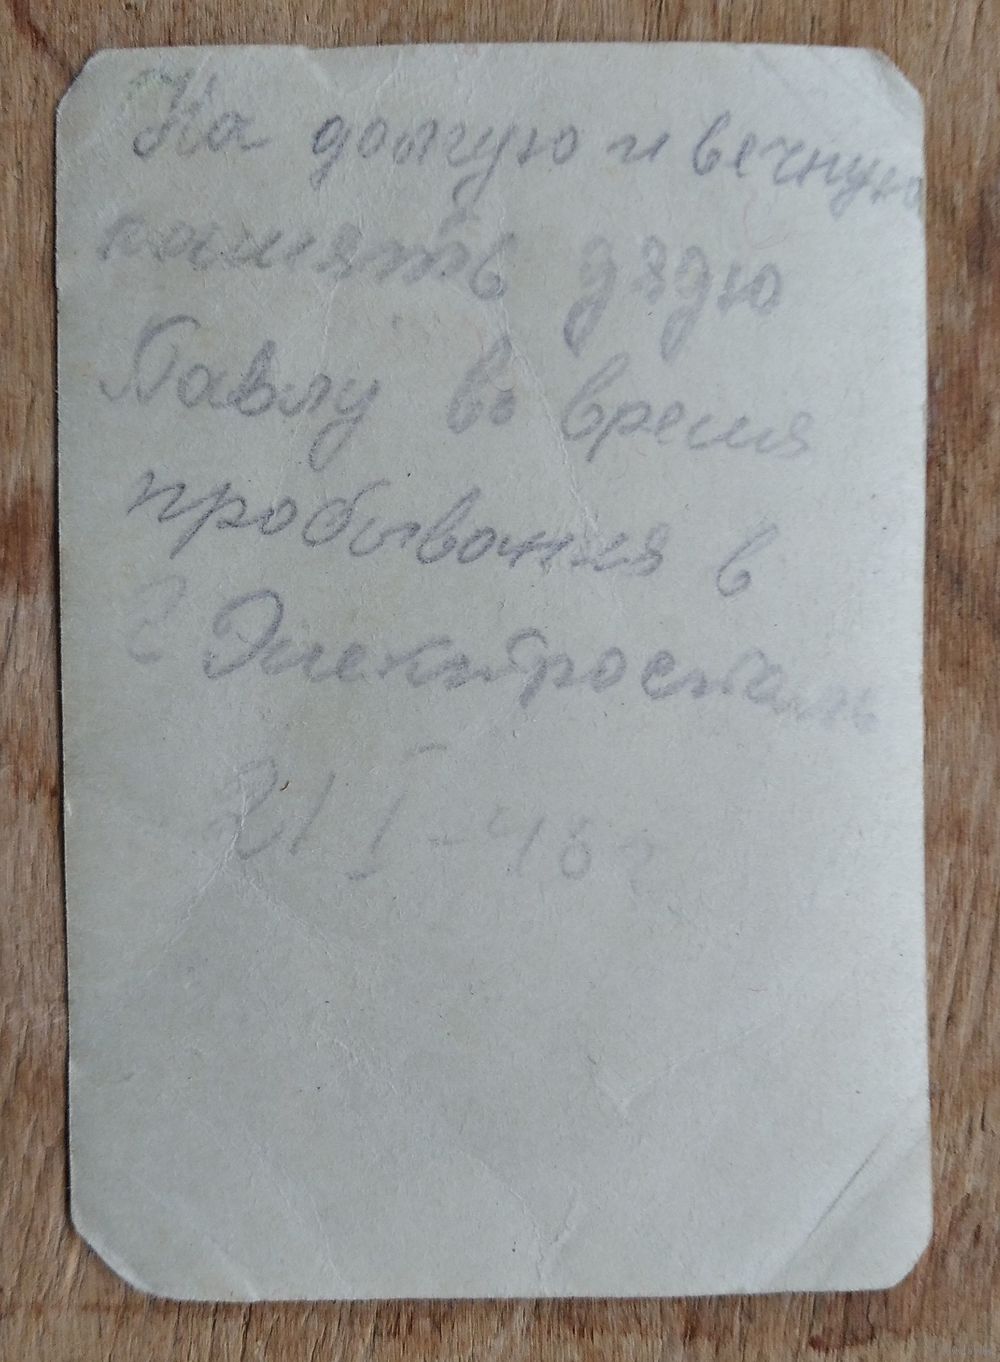 На долгую и вечную
память дядю
Павлу во время
пробывания в
г Электросталь
21 I - 48 г